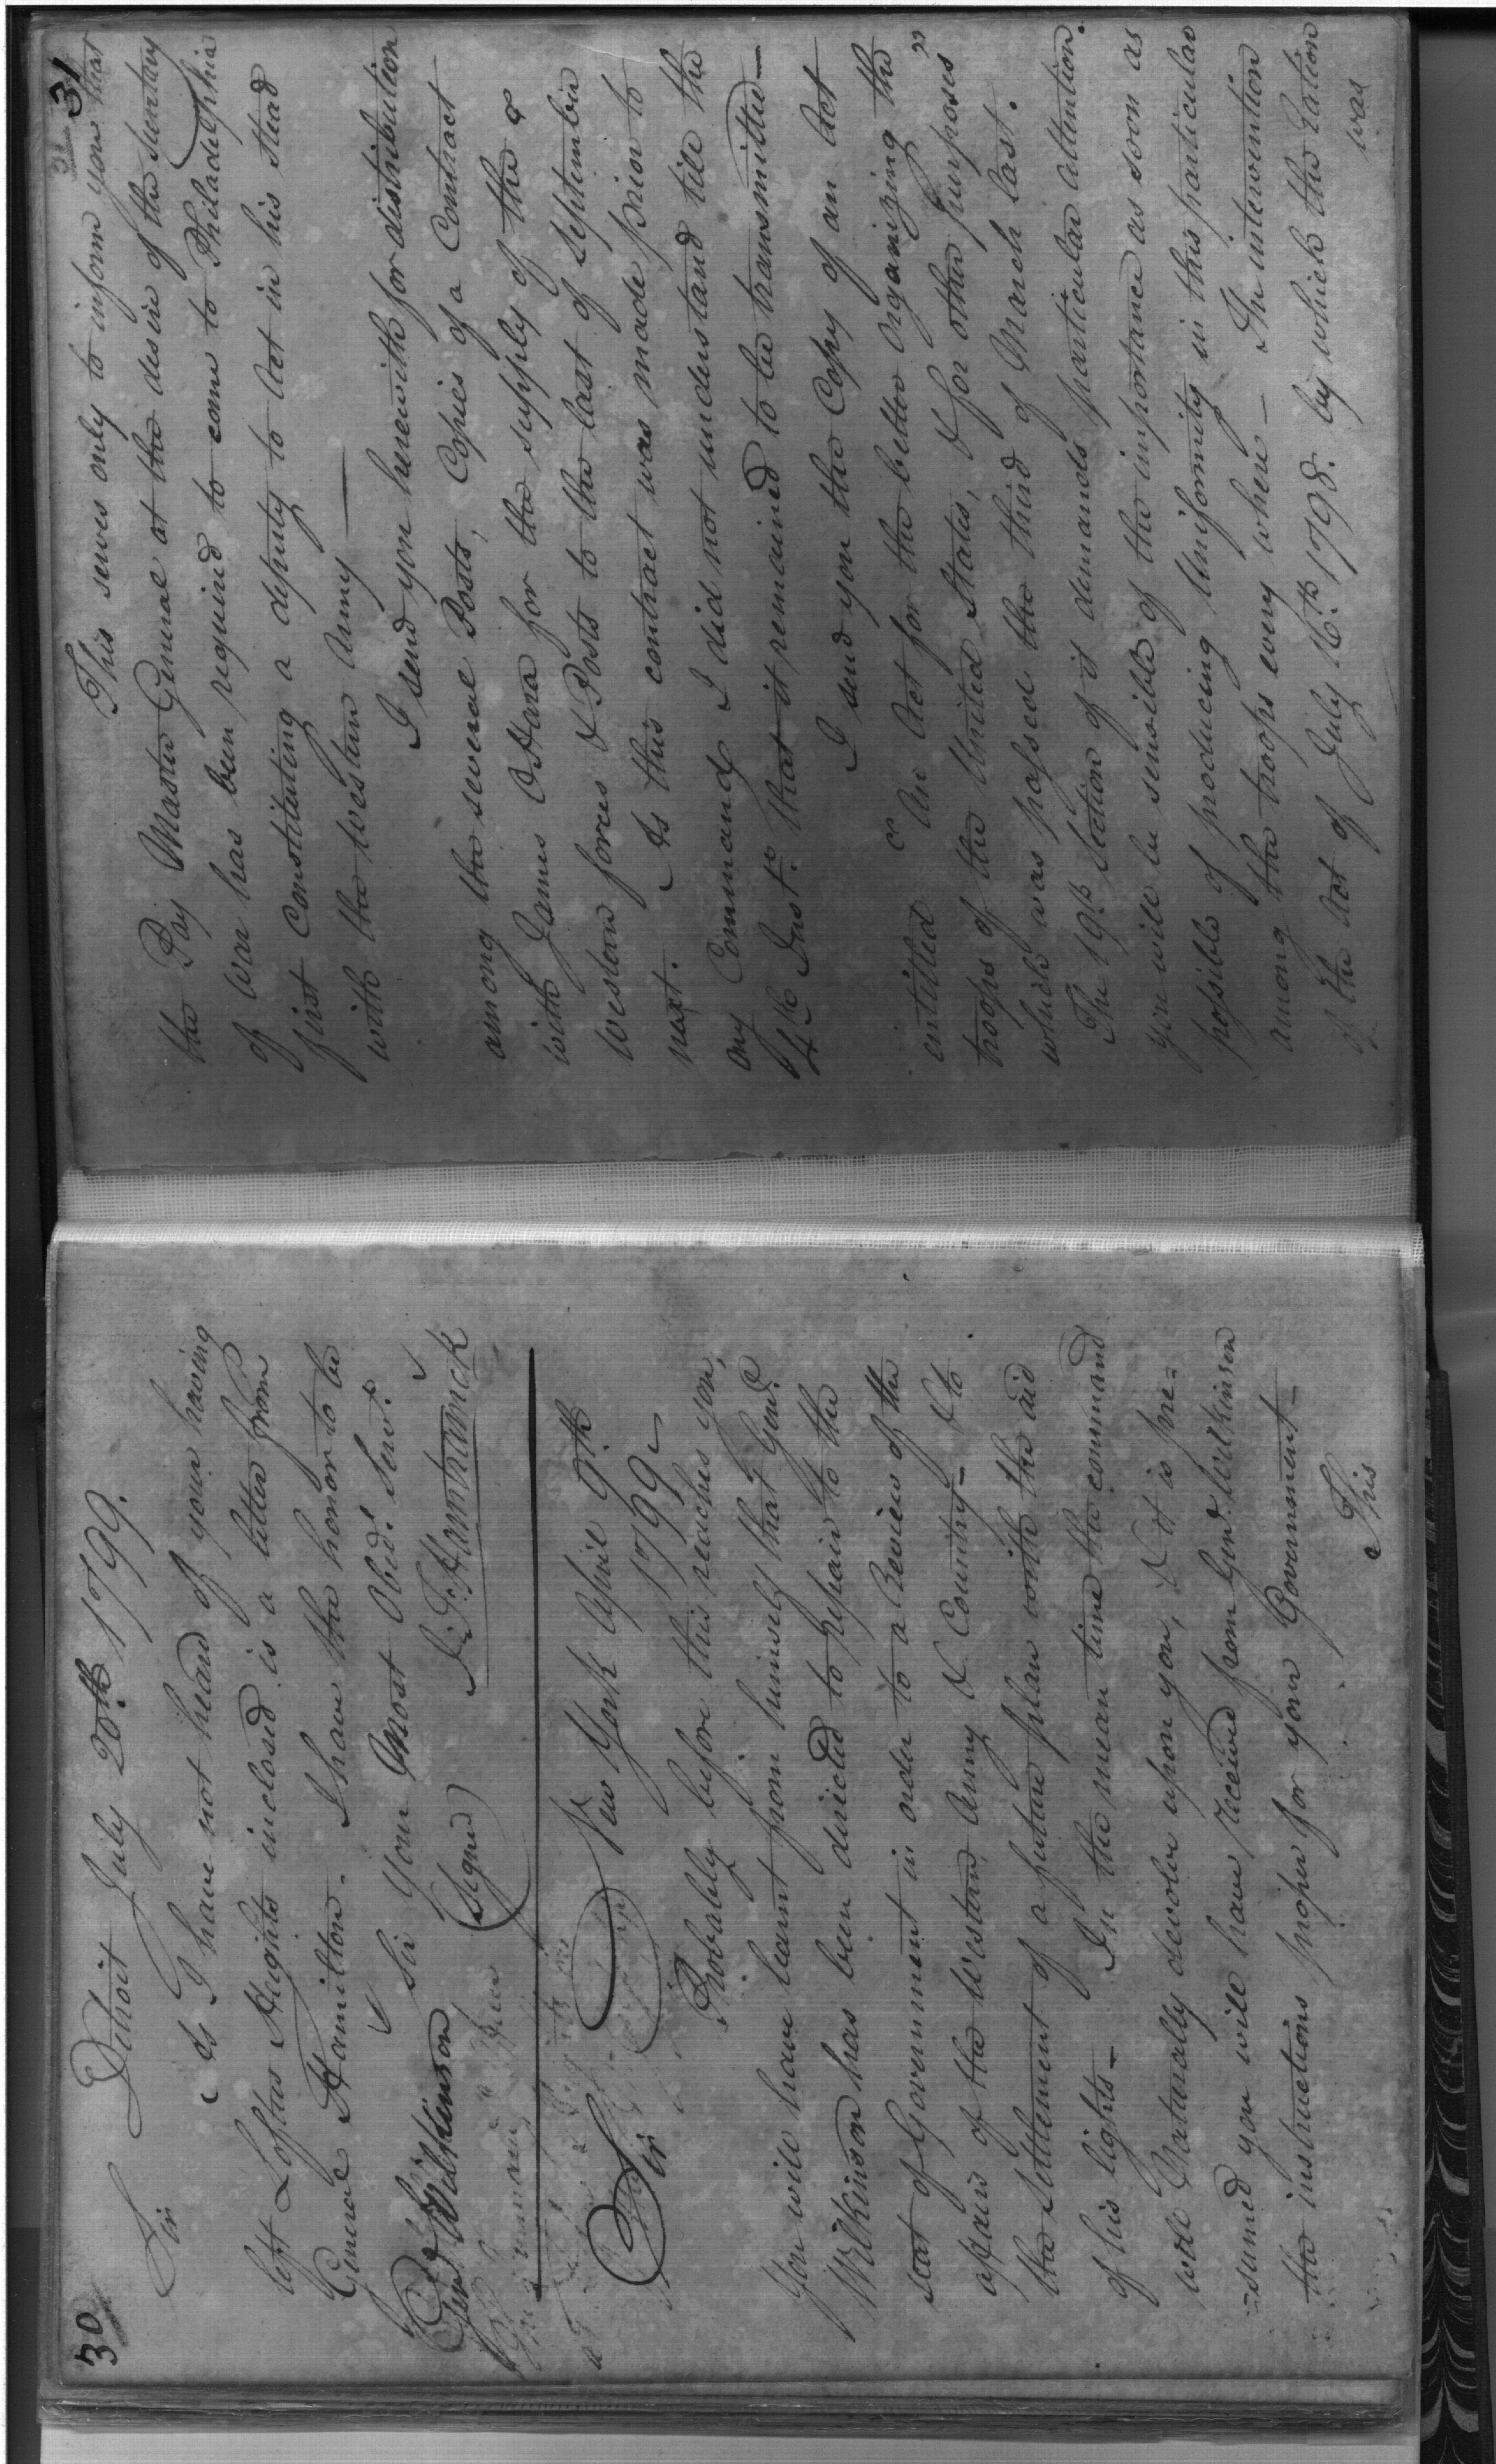 30
Detroit July 20th 1799.
Sir
As I have not heard of your having
left Loftus Heights inclosed is a letter from
General Hamilton. I have the honor to be
Sir Your Most Obed.t Serv.t
(Signed) J. F. Hamtramck
Genl. Wilkinson
New York April 9th
1799
Sir
Probably before this reaches you,
You will have learnt from himself that Genl.
Wilkinson has been directed to repair to the
seat of Government in order to a Review of the
affairs of the Western Army & Country_ & to
the Settlement of a future plan with the aid
of his lights_ In the mean time the command
will Naturally devolve upon you, & it is pre=
=sumed you will have received from Genl. Wilkinson
the instructions proper for your Government_
This
31
This serves only to inform you that
the Pay Master General at the desire of the Secretary
of War has been required to come to Philadelphia
first Constituting a deputy to Act in his stead
with the Western Army —
I send you herewith for distribution
among the several Posts, Copies of a Contract
with James OHara for the supply of the
Western forces & Posts to the last of September
next. As this contract was made prior to
my Command I did not understand till the
4th Inst. that it remained to be transmitted—
I send you the Copy of an Act
entitled "An Act for the better Organizing the
troops of the United States, & for other purposes"
which was passed the third of March last.
The 19th Section of it demands particular attention.
you will be sensible of the importance as soon as
possible of producing Uniformity in this particular
among the troops every where_ The intervention
of the Act of July 16th 1798. by which the Ration
was